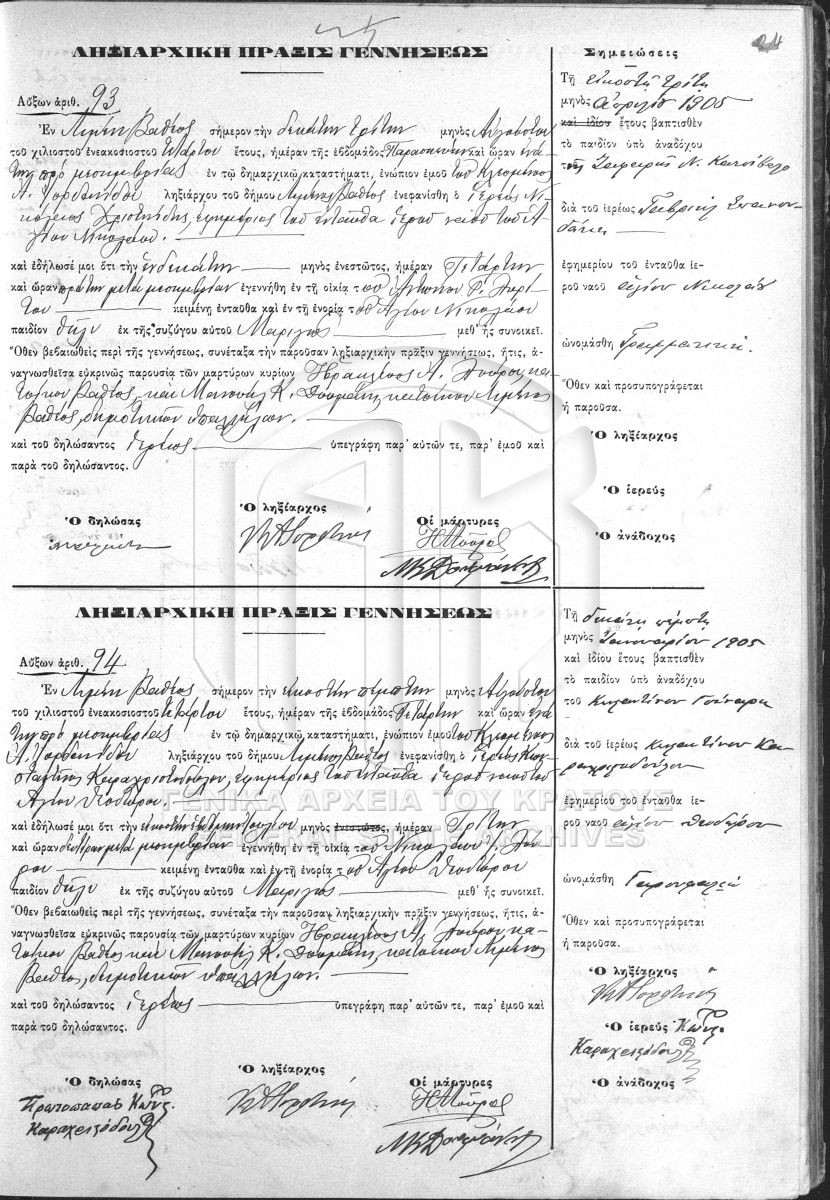 94
ΛΗΞΙΑΡΧΙΚΗ ΠΡΑΞΙΣ ΓΕΝΝΗΣΕΩΣ
Αὔξων ἀριθ. 93
Ἐν Λιμένι Βαθέος σήμερον τὴν δεκάτην τρίτην μηνὸς Αὐγούστου
τοῦ χιλιοστοῦ ἐνεακοσιοστοῦ τετάρτου ἔτους, ἡμέραν τῆς ἑβδομάδος Παρασκευὴν καὶ ὥραν ἐνά
την πρὸ μεσημβρίας ἐν τῷ δημαρχικῷ καταστήματι, ἐνώπιον ἐμοῦ τοῦ Κλεομένους
Α. ληξιάρχου τοῦ δήμου Λιμένος Βαθέος ἐνεφανίσθη ὁ ἱερεὺς Νι
κόλαος Χρηστίδης, ἐφημέριος τοῦ ἐνταῦθα ἱεροῦ ναοῦ τοῦ Ἁ
γίου Νικολάου.
καὶ ἐδήλωσέ μοι ὅτι τὴν ἑνδεκάτην μηνὸς ἐνεστῶτος, ἡμέραν Τετάρτην
καὶ ὥραν πρώτην μετὰ μεσημβρίαν ἐγεννήθη ἐν τῇ οἰκίᾳ τοῦ Ἀντωνίου
κειμένῃ ἐνταῦθα καὶ ἐν τῇ ἐνορίᾳ τοῦ Ἁγίου Νικολάου
παιδίον θῆλυ ἐκ τῆς συζύγου αὐτοῦ Μαριγῶς μεθ' ἧς συνοικεῖ.
Ὅθεν βεβαιωθεὶς περὶ τῆς γεννήσεως, συνέταξα τὴν παροῦσαν ληξιαρχικὴν πρᾶξιν γεννήσεως, ἥτις, ἀ-
ναγνωσθεῖσα εὐκρινῶς παρουσίᾳ τῶν μαρτύρων κυρίων Ἡρακλέους Α. κα
τοίκου Βαθέος καὶ Μανουὴλ Κ. κατοίκου Λιμένος
Βαθέος, δημοτικῶν ὑπαλλήλων.
καὶ τοῦ δηλώσαντος ἱερέως ὑπεγράφη παρ' αὐτῶν τε, παρ' ἐμοῦ καὶ
παρὰ τοῦ δηλώσαντος.
Ὁ δηλώσας
Ὁ ληξίαρχος
Οἱ μάρτυρες
Σημειώσεις
Τῇ εἰκοστῇ τρίτῃ
μηνὸς Ἀπριλίου 1905
καὶ ἰδίου ἔτους βαπτισθὲν
τὸ παιδίον ὑπὸ ἀναδόχου
Ν.
διὰ τοῦ ἱερέως Γαβριὴλ
ἐφημερίου τοῦ ἐνταῦθα ἱε-
ροῦ ναοῦ ἁγίου Νικολάου
ὠνομάσθη Γραμματική.
Ὅθεν καὶ προσυπογράφεται
ἡ παροῦσα.
Ὁ ληξίαρχος
Ὁ ἱερεὺς
Ὁ ἀνάδοχος
ΛΗΞΙΑΡΧΙΚΗ ΠΡΑΞΙΣ ΓΕΝΝΗΣΕΩΣ
Αὔξων ἀριθ. 94
Ἐν Λιμένι Βαθέος σήμερον τὴν εἰκοστὴν πέμπτην μηνὸς Αὐγούστου
τοῦ χιλιοστοῦ ἐνεακοσιοστοῦ τετάρτου ἔτους, ἡμέραν τῆς ἑβδομάδος Τετάρτην καὶ ὥραν ἐνά
την πρὸ μεσημβρίας ἐν τῷ δημαρχικῷ καταστήματι, ἐνώπιον ἐμοῦ τοῦ Κλεομένους
Α. ληξιάρχου τοῦ δήμου Λιμένος Βαθέος ἐνεφανίσθη ὁ ἱερεὺς Κων
σταντῖνος ἐφημέριος τοῦ ἐνταῦθα ἱεροῦ ναοῦ τοῦ
Ἁγίου Θεοδώρου.
καὶ ἐδήλωσέ μοι ὅτι τὴν εἰκοστὴν ἑβδόμην Ἰουλίου μηνὸς ἐνεστῶτος, ἡμέραν Τρίτην
καὶ ὥραν δευτέραν μετὰ μεσημβρίαν ἐγεννήθη ἐν τῇ οἰκίᾳ τοῦ Νικολάου
κειμένῃ ἐνταῦθα καὶ ἐν τῇ ἐνορίᾳ τοῦ Ἁγίου Θεοδώρου
παιδίον θῆλυ ἐκ τῆς συζύγου αὐτοῦ Μαριγῶς μεθ' ἧς συνοικεῖ.
Ὅθεν βεβαιωθεὶς περὶ τῆς γεννήσεως, συνέταξα τὴν παροῦσαν ληξιαρχικὴν πρᾶξιν γεννήσεως, ἥτις, ἀ-
ναγνωσθεῖσα εὐκρινῶς παρουσίᾳ τῶν μαρτύρων κυρίων Ἡρακλέους Α. κα
τοίκου Βαθέος καὶ Μανουὴλ Κ. κατοίκου Λιμένος
Βαθέος, δημοτικῶν ὑπαλλήλων.
καὶ τοῦ δηλώσαντος ἱερέως ὑπεγράφη παρ' αὐτῶν τε, παρ' ἐμοῦ καὶ
παρὰ τοῦ δηλώσαντος.
Ὁ δηλώσας
Πρωτοπαπᾶς Κωνς.
Ὁ ληξίαρχος
Οἱ μάρτυρες
Τῇ δεκάτῃ πέμπτῃ
μηνὸς Ἰανουαρίου 1905
καὶ ἰδίου ἔτους βαπτισθὲν
τὸ παιδίον ὑπὸ ἀναδόχου
τοῦ
διὰ τοῦ ἱερέως
ἐφημερίου τοῦ ἐνταῦθα ἱε-
ροῦ ναοῦ ἁγίου Θεοδώρου
ὠνομάσθη
Ὅθεν καὶ προσυπογράφεται
ἡ παροῦσα.
Ὁ ληξίαρχος
Ὁ ἱερεὺς Κωνς.
Ὁ ἀνάδοχος
ΓΕΝΙΚΑ ΑΡΧΕΙΑ ΤΟΥ ΚΡΑΤΟΥΣ
GENERAL STATE ARCHIVES